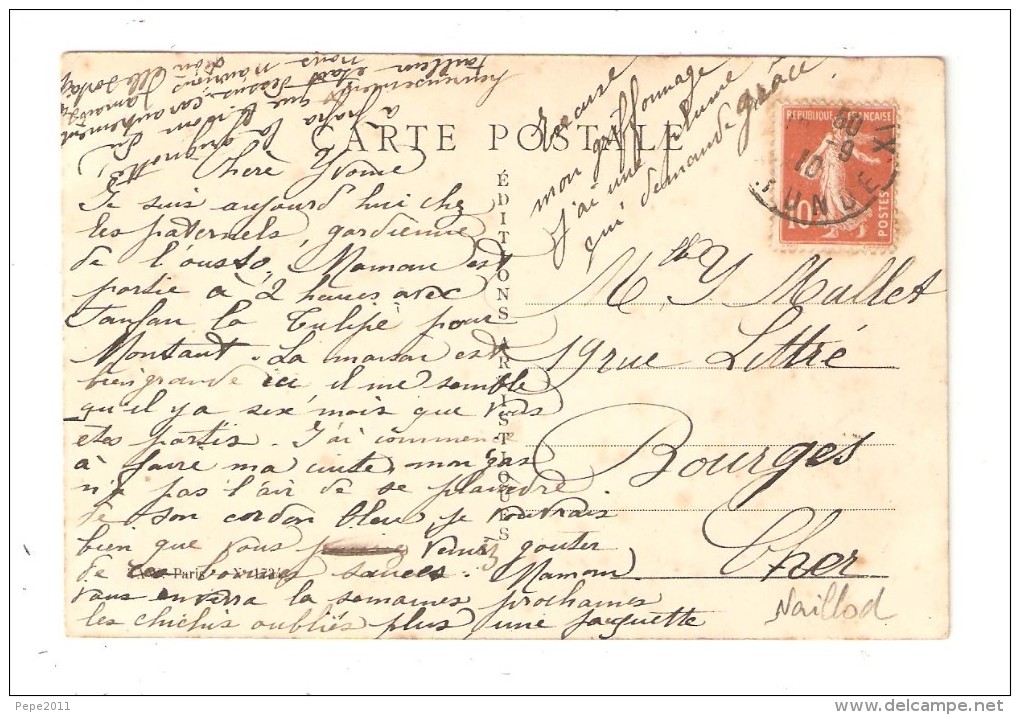 CARTE POSTALE
ÉDITIONS ARTISTIQUES
REPUBLIQUE FRANÇAISE
10
POSTES
Chère Yvonne
Je suis aujourd'hui chez
les paternels, gardienne
de l'ousto, Maman est
partie à 2 heures avec
Fanfan la Tulipe pour
Montaut. La maison est
bien grande ici il me semble
qu'il y a six mois que vous
êtes partis. J'ai commencé
à faire ma cuite, mon gas
n'a pas l'air de se plaindre
de son cordon bleu, je voudrais
bien que vous venir gouter
de ces bonnes sauces. Maman
Paris
vous enverra la semaines prochaines
les chichis oubliés plus une jaquette
à papa
excuse
mon griffonnage
j'ai une plume
qui demande grâce.
Mlle Y Mallet
19 rue Littré
Bourges
Cher
Naillod
Pepe2011
www.delcampe.net